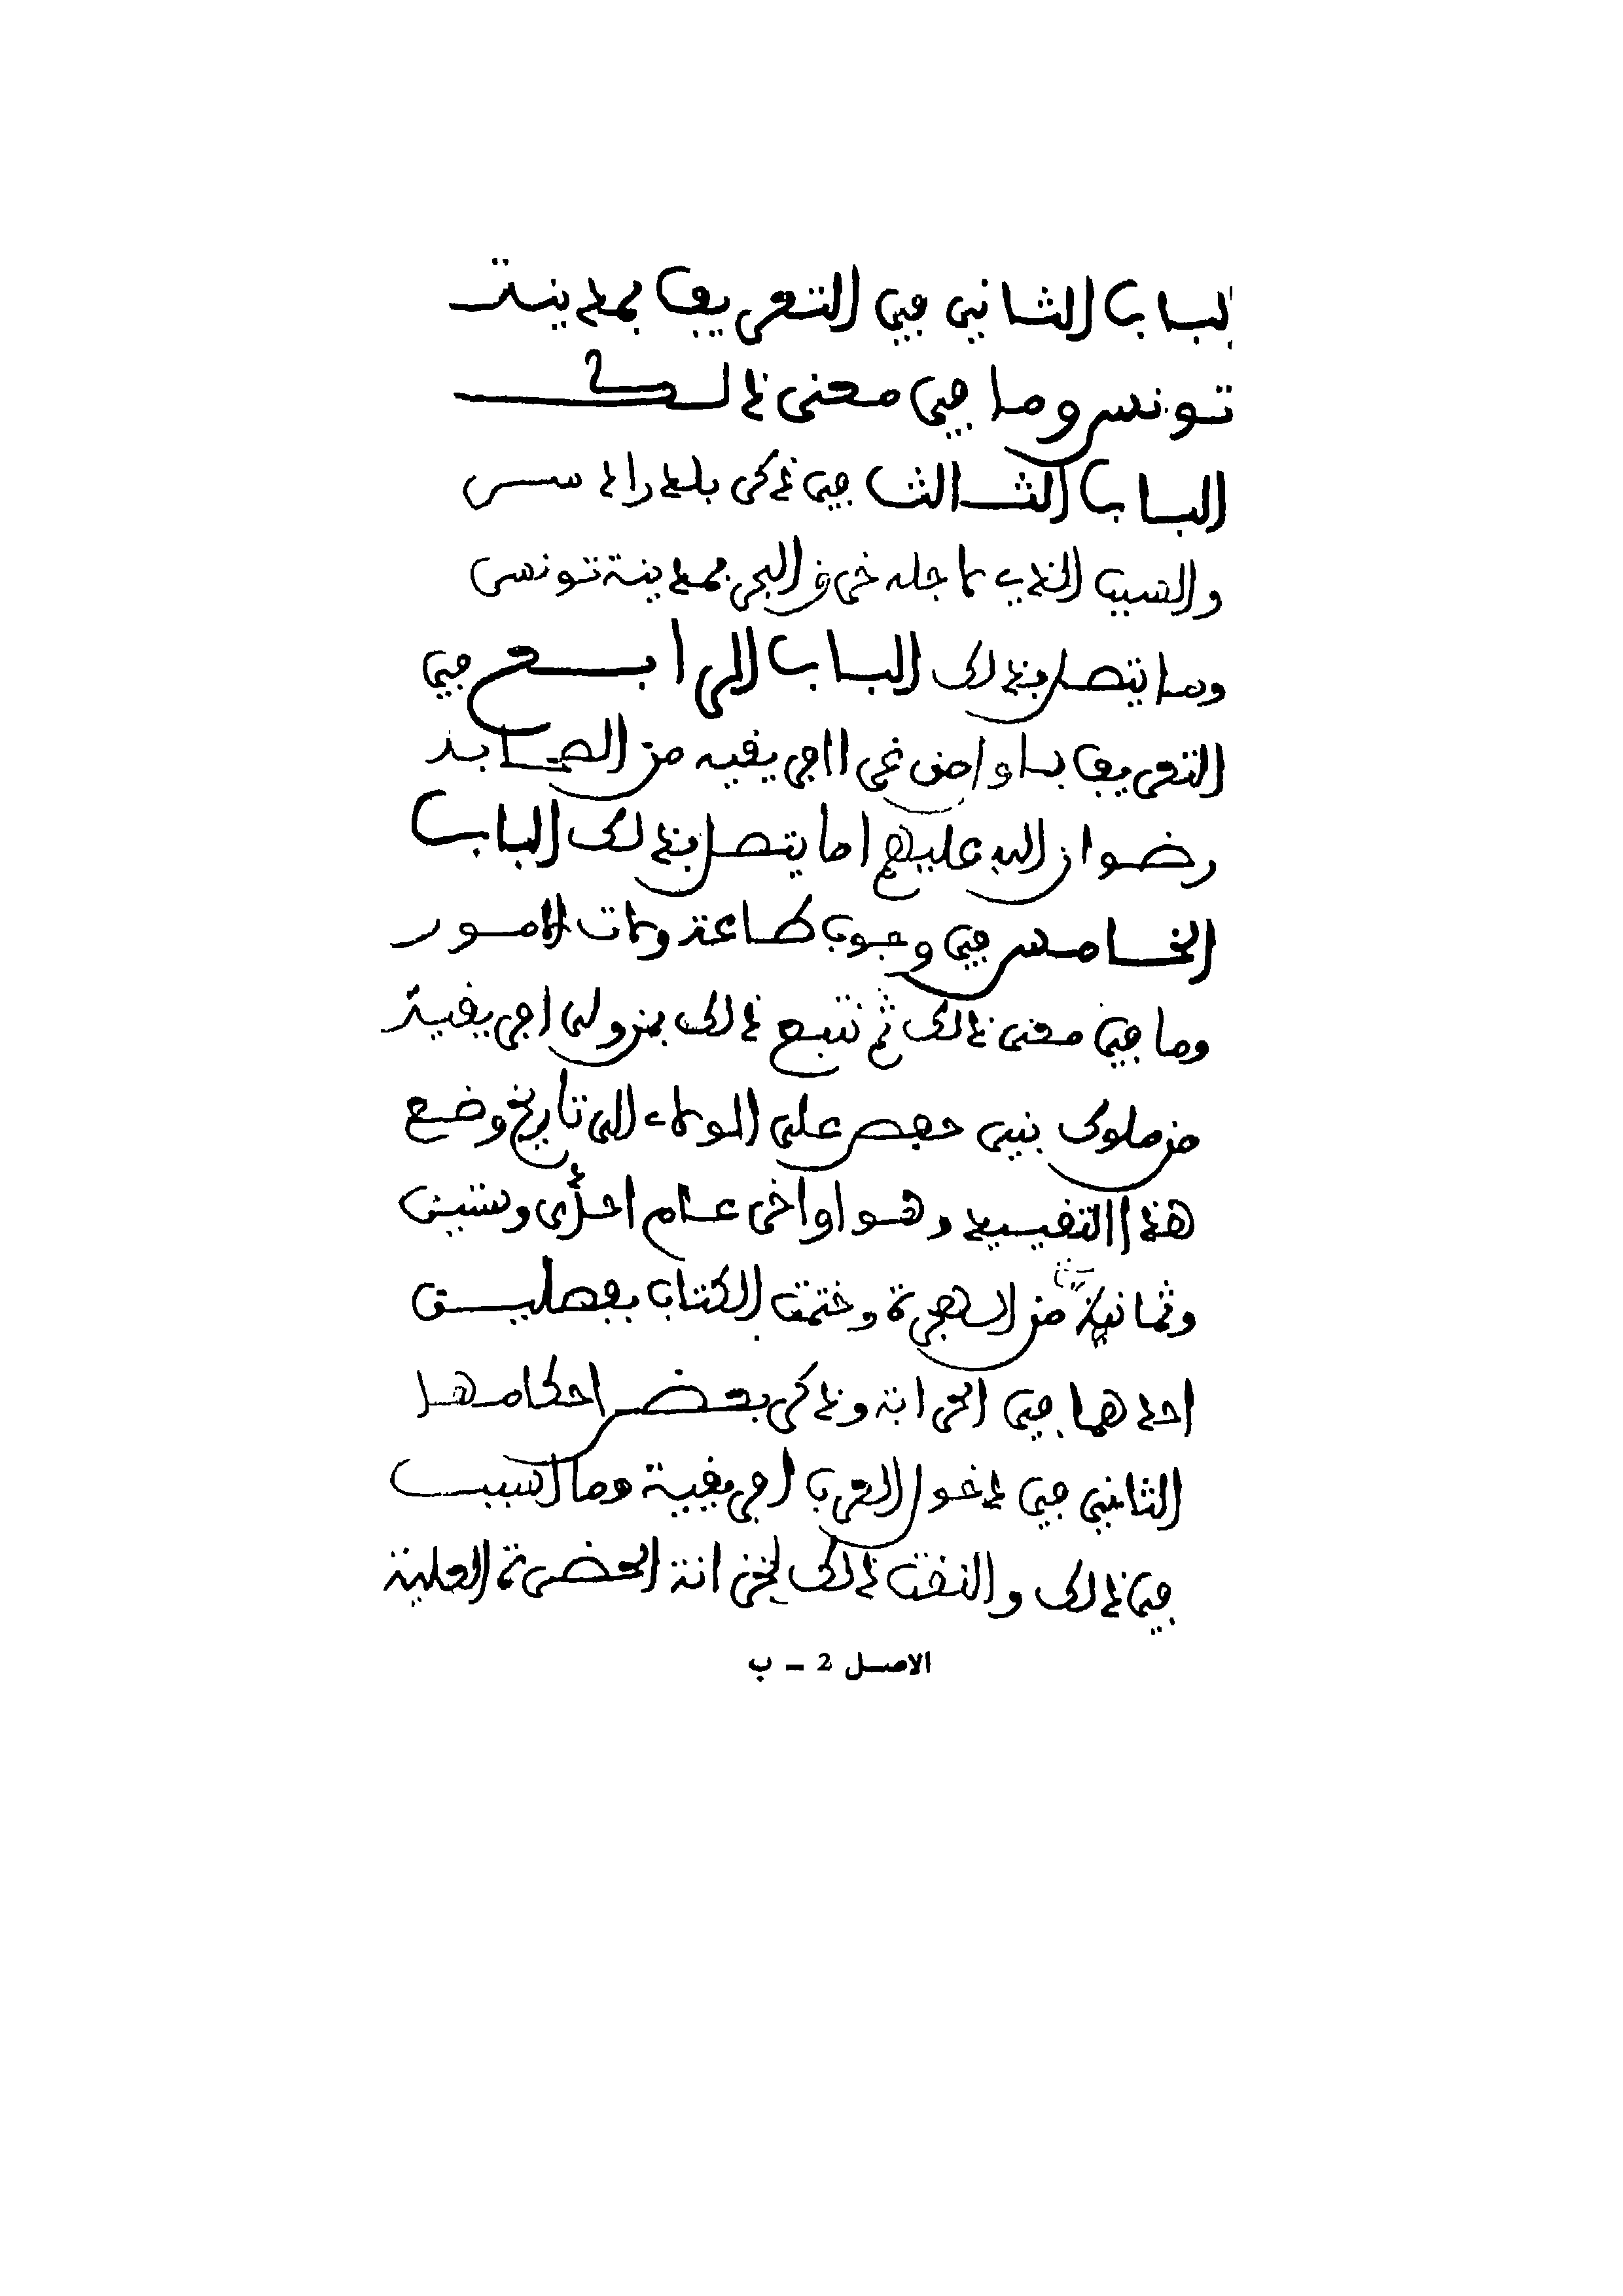 الباب الثاني في التعريف بمدينة
تونس وما في معنى ذلك
الباب الثالث في ذكر بلد رادس
والسبب الذي لاجله خرق البحر بمدينة تونس
وما يتصل بذلك الباب الرابع في
التعريف باول من غزا افريقية من الصحابة
رضوان الله عليهم اما يتصل بذلك الباب
الخامس في وجوب طاعة ولات الامور
وما في معنى ذلك ثم نتبع ذلك بمن ولى افريقية
من ملوك بني حفص على الولاء الى تاريخ وضع
هذا التقييد وهو اواخر عام احدى وستين
وثمانية من الهجرة وختمت الكتاب بفصلين
احدهما في الحرابة وذكر بعض احكامها
الثاني في دخول العرب افريقية وما السبب
في ذلك والفت ذلك لخزانة الحضرة العلية
الاصل 2 – ب